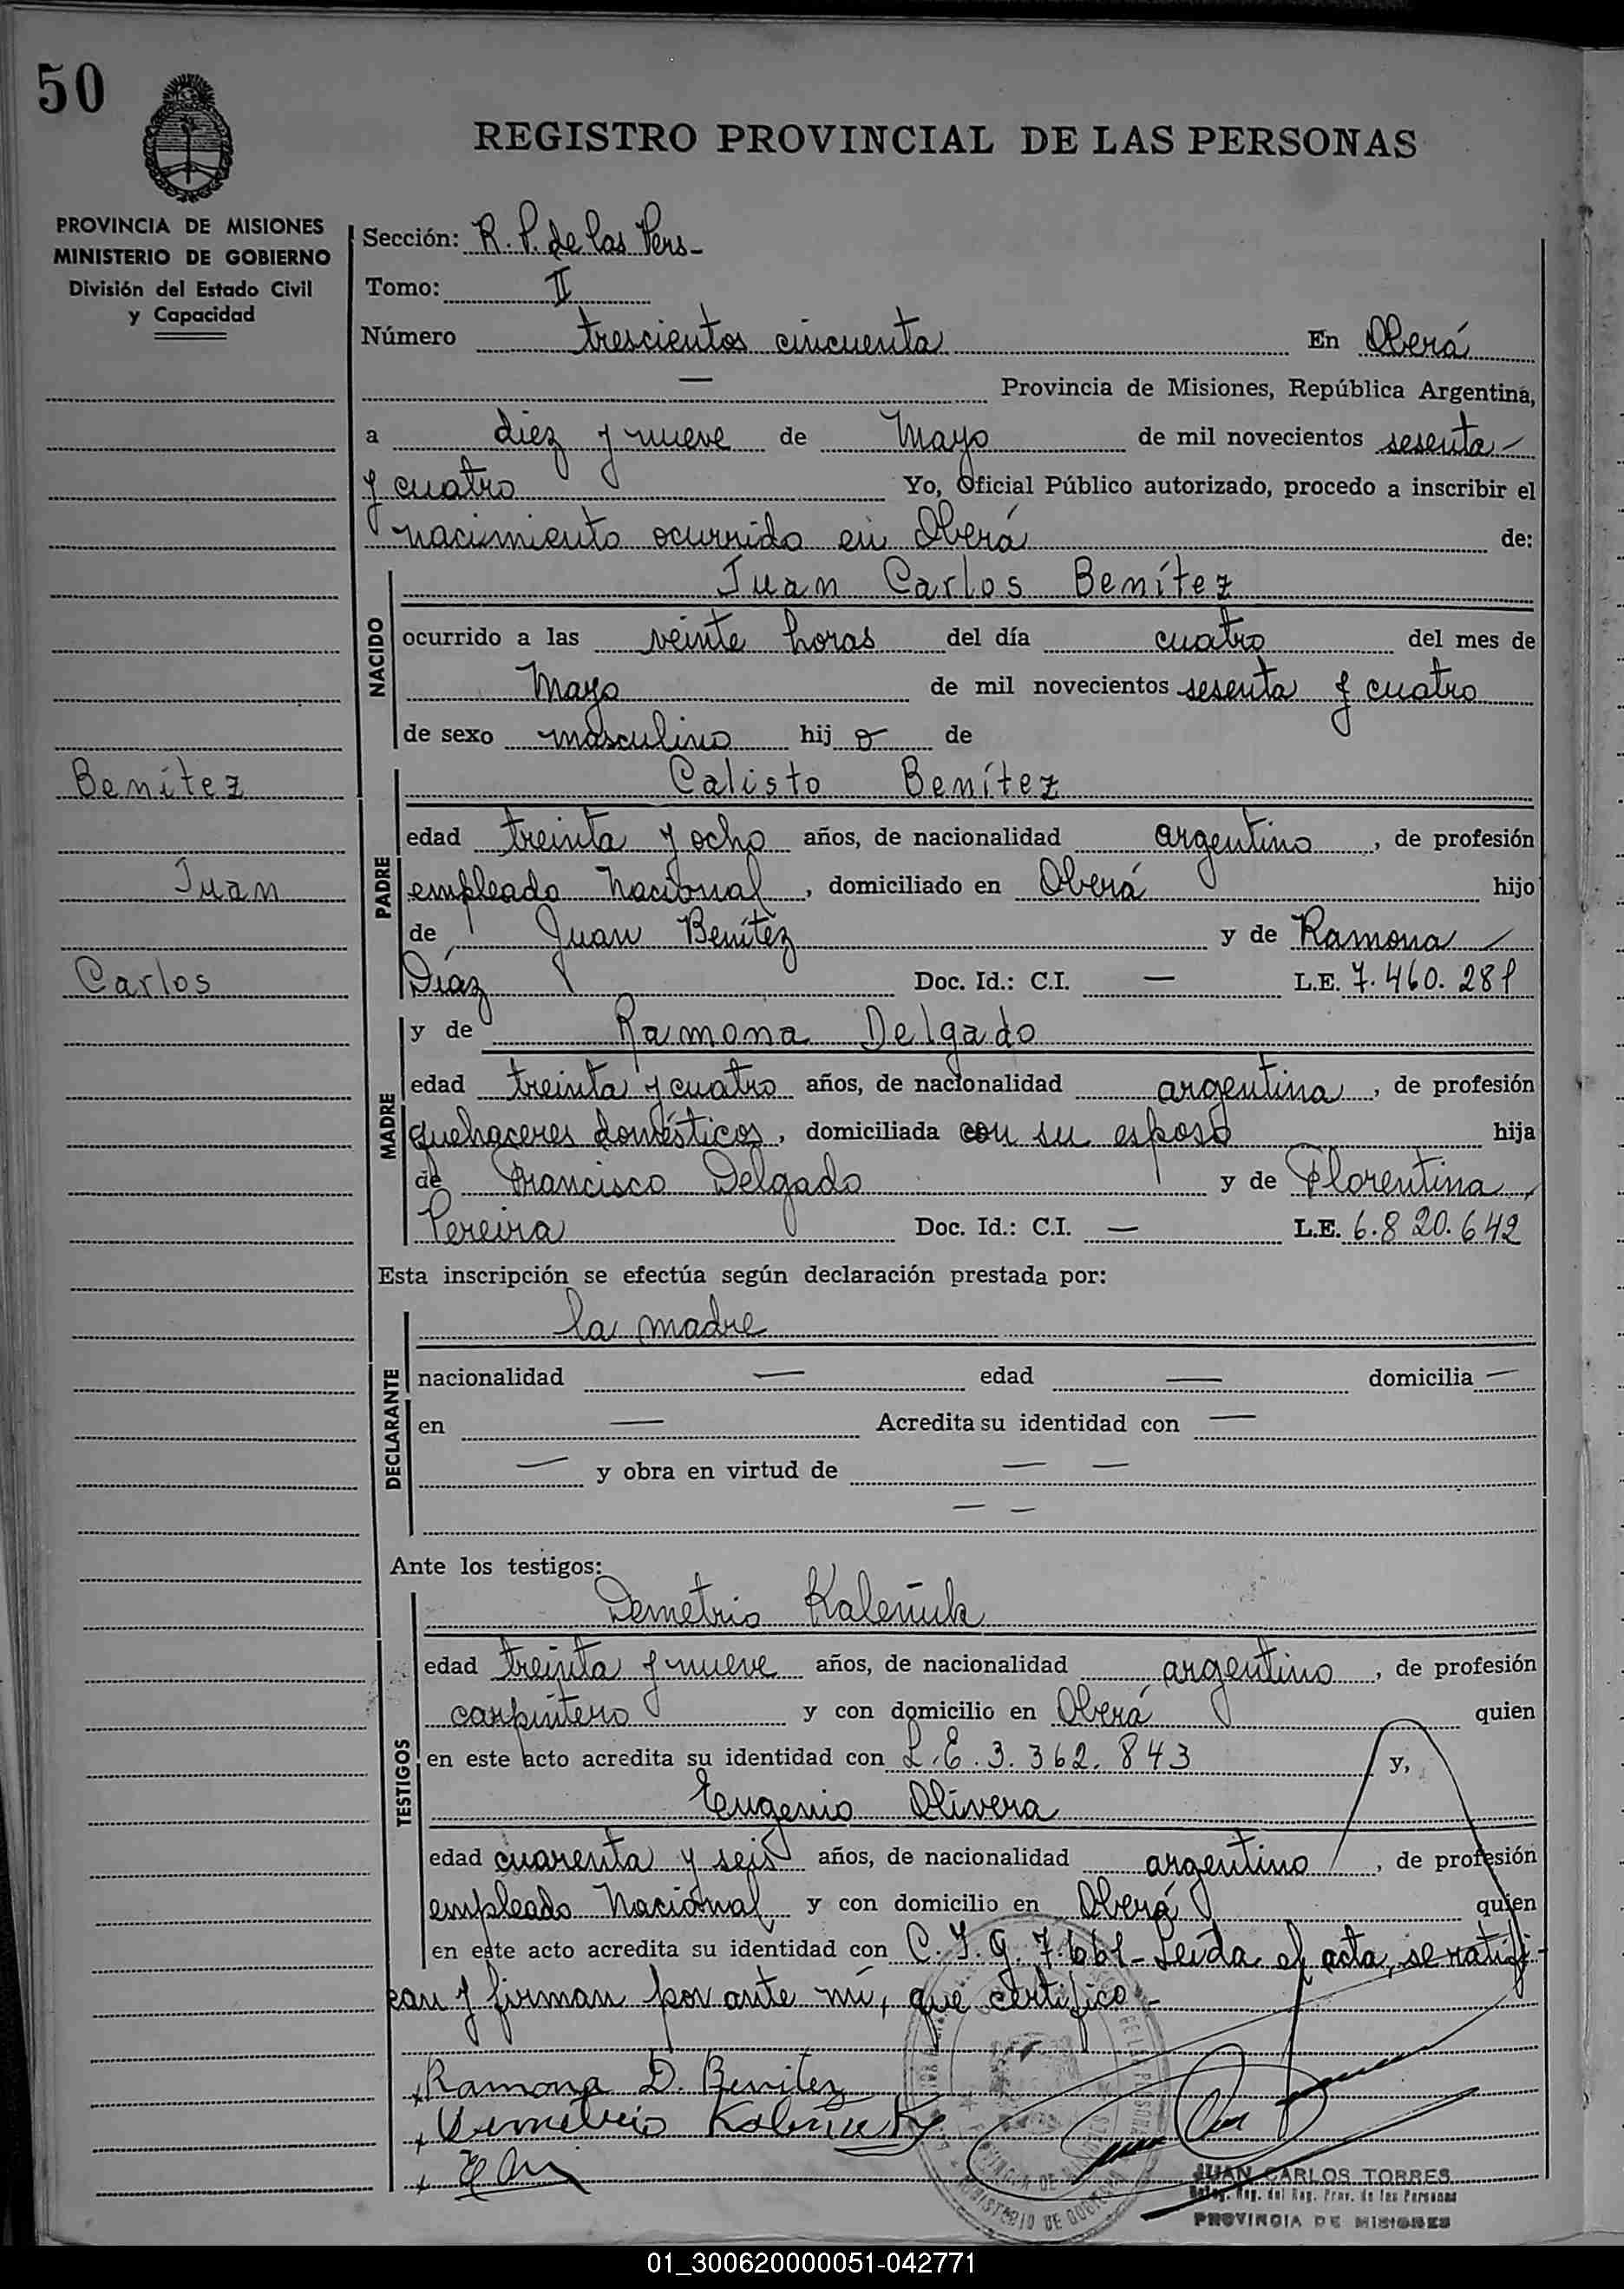 50
REGISTRO PROVINCIAL DE LAS PERSONAS
PROVINCIA DE MISIONES
MINISTERIO DE GOBIERNO
División del Estado Civil
y Capacidad
Sección: R. P. de las Pers-
Tomo: II
Número trescientos cincuenta En Oberá
— Provincia de Misiones, República Argentina,
a diez y nueve de Mayo de mil novecientos sesenta
y cuatro Yo, Oficial Público autorizado, procedo a inscribir el
nacimiento ocurrido en Oberá de:
NACIDO
Juan Carlos Benítez
ocurrido a las veinte horas del día cuatro del mes de
Mayo de mil novecientos sesenta y cuatro
de sexo masculino hij o de
Benítez
Juan
Carlos
PADRE
Calisto Benítez
edad treinta y ocho años, de nacionalidad argentino, de profesión
empleado Nacional, domiciliado en Oberá hijo
de Juan Benítez y de Ramona
Díaz Doc. Id.: C.I. — L.E. 7.460.281
MADRE
y de Ramona Delgado
edad treinta y cuatro años, de nacionalidad argentina, de profesión
quehaceres domésticos, domiciliada con su esposo hija
de Francisco Delgado y de Florentina
Pereira Doc. Id.: C.I. — L.E. 6.820.642
Esta inscripción se efectúa según declaración prestada por:
DECLARANTE
la madre
nacionalidad — edad — domicilia —
en — Acredita su identidad con —
— y obra en virtud de — —
— —
Ante los testigos:
TESTIGOS
Demetrio Kaleñuk
edad treinta y nueve años, de nacionalidad argentino, de profesión
carpintero y con domicilio en Oberá quien
en este acto acredita su identidad con L.E. 3.362.843 y,
Eugenio Olivera
edad cuarenta y seis años, de nacionalidad argentino, de profesión
empleado Nacional y con domicilio en Oberá quien
en este acto acredita su identidad con C.I. 97.661- Leida el acta, se ratifi-
can y firman por ante mí, que certifico-
Ramona D. Benitez
Demetrio Kaleñuk
JUAN CARLOS TORRES
Deleg. Reg. del Reg. Prov. de las Personas
PROVINCIA DE MISIONES
01_300620000051-042771